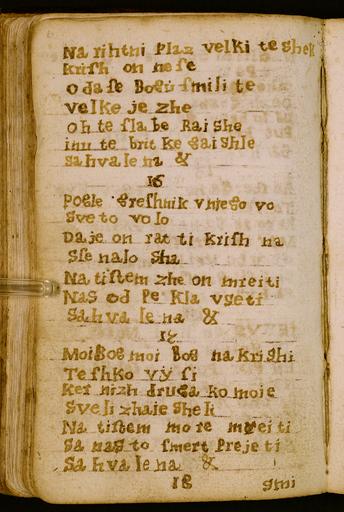 Na rihtni Plaz velki te shek
krish on nese
o da se Bogu smili te
velke je zhe
oh te sla be Rai she
inu te brit ke gaishle
sahvalena &
16
Pogle greshnik v njego vo
Sveto volo
Da je on rat ti krish na
Sse nalo sha
Na tistem zhe on mreiti
Nas od Pe kla vseti
Sahva le na &
17
Moi Bog moi Bog na krishi
Teshko vÿsi
Ker nizh druga ko moje
Sveli zhaie shelì
Na tistem more mreiti
Sa nas to smert Preje ti
Sa hva le na &
18 smi